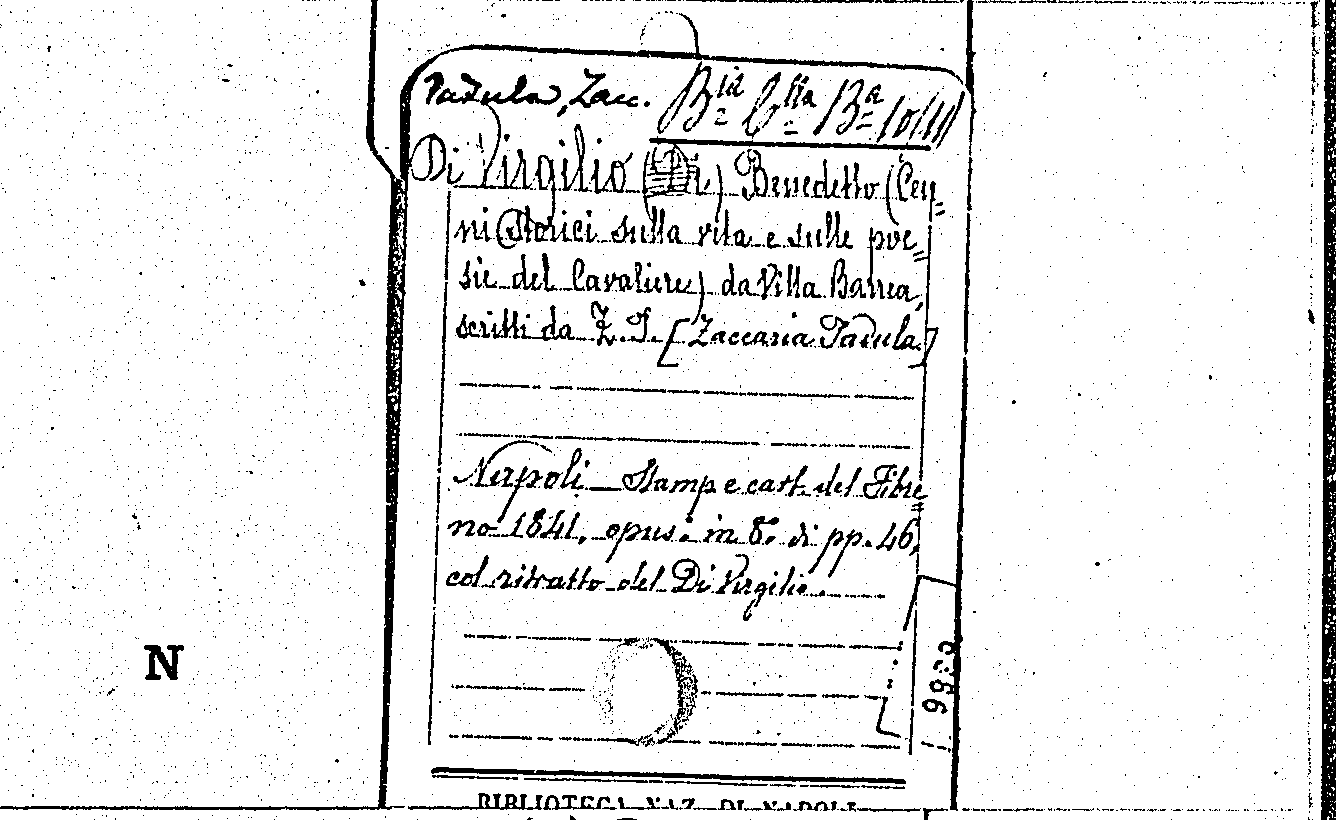 Padula, Zac. B.ta C.lla B.a 10/111
Di Virgilio (Di) Benedetto (Cen=
ni Storici sulla vita e sulle poe=
sie del Cavaliere) da Villa Barrea,
scritti da Z. P. [Zaccaria Padula.]
Napoli _ Stamp e cart. del Fibre=
no 1841, opus: in 8.° di pp. 46,
col ritratto del Di Virgilio.
N
BIBLIOTECA NAZ. DI NAPOLI